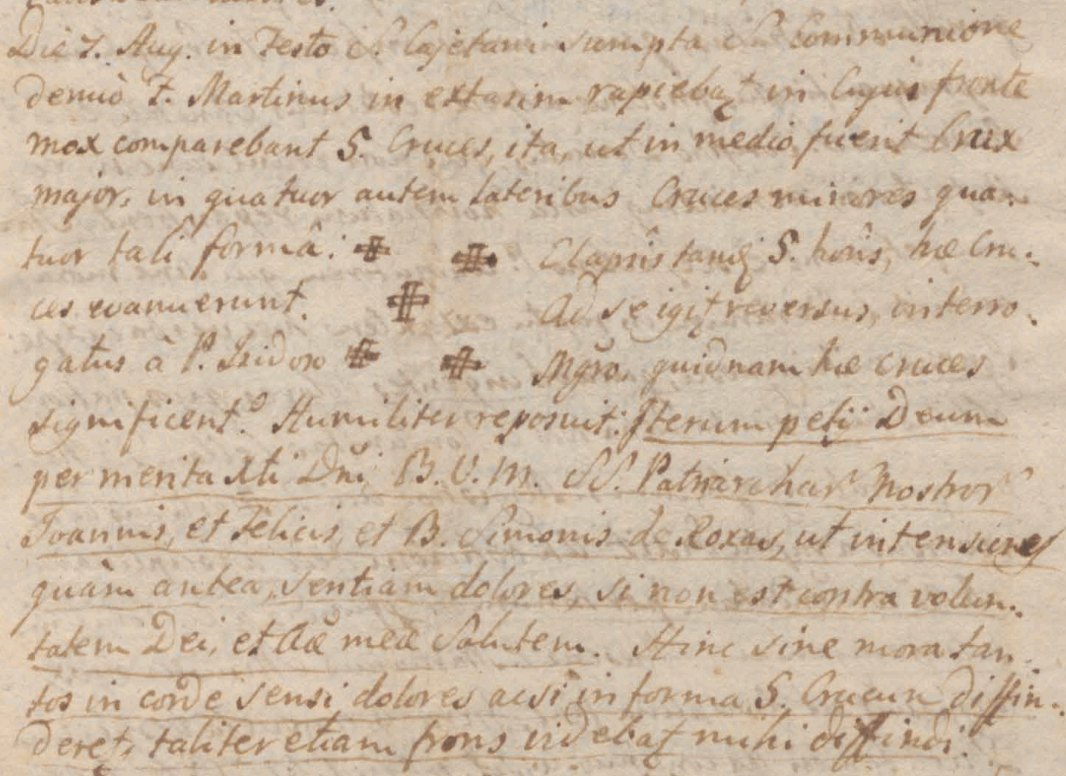 Die 7. Aug. in Festo S. Cajetani sumpta S. Communione
denuò F. Martinus in extasim rapiebat in cujus fronte
mox comparebant 5. Cruces, ita, ut in medio fuerit Crux
major, in quatuor autem lateribus Cruces minores qua-
tuor tali formâ: Elapsis tanq 5. horis, hæ Cru-
ces evanuerunt. Ad se igit reversus, interro-
gatus à P. Isidoro Mgro, quidnam hæ cruces
significent? Humiliter reposuit: Iterum petij Deum
per merita Xti Dni, B. V. M. SS. Patriarchar Nostror
Joannis, et Felicis, et B. Simonis de Roxas, ut intensiores
quàm antea, sentiam dolores, si non est contra volun-
tatem Dei, et aæ meæ salutem. Hinc sine mora tan-
tos in corde sensi dolores acsi in forma 5. Crucum diffin-
deret, taliter etiam frons videbat mihi diffindi.